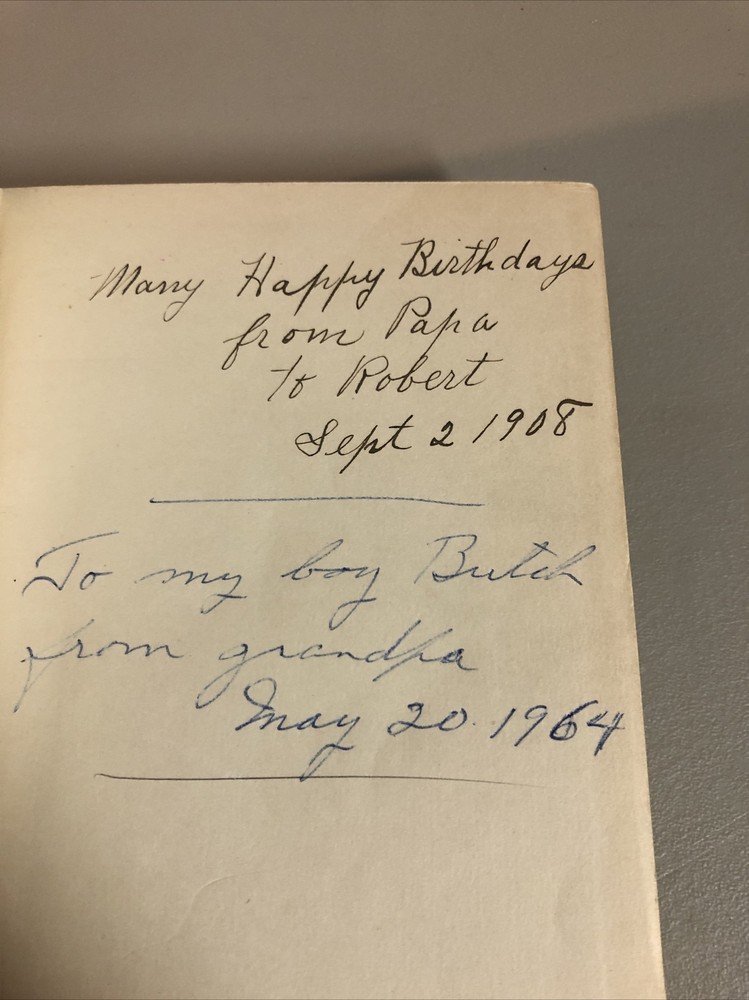 Many Happy Birthdays
from Papa
to Robert
Sept 2 1908
To my boy Butch
from grandpa
May 20 1964